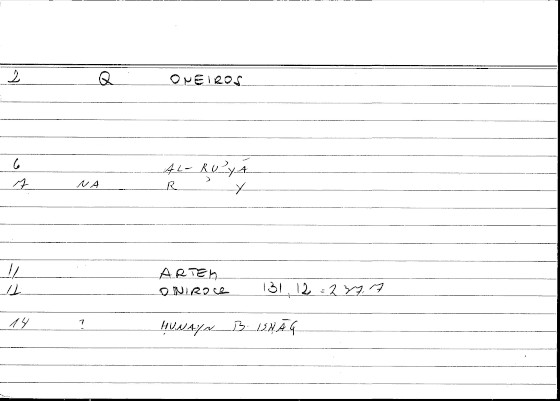 2 Q ONEIROS
6 AL-RUʾYĀ
7 NA R ʾ Y
11 ARTEM
12 ONIROCR 131,12 = 247.7
14 ? ḤUNAYN B ISḤĀQ